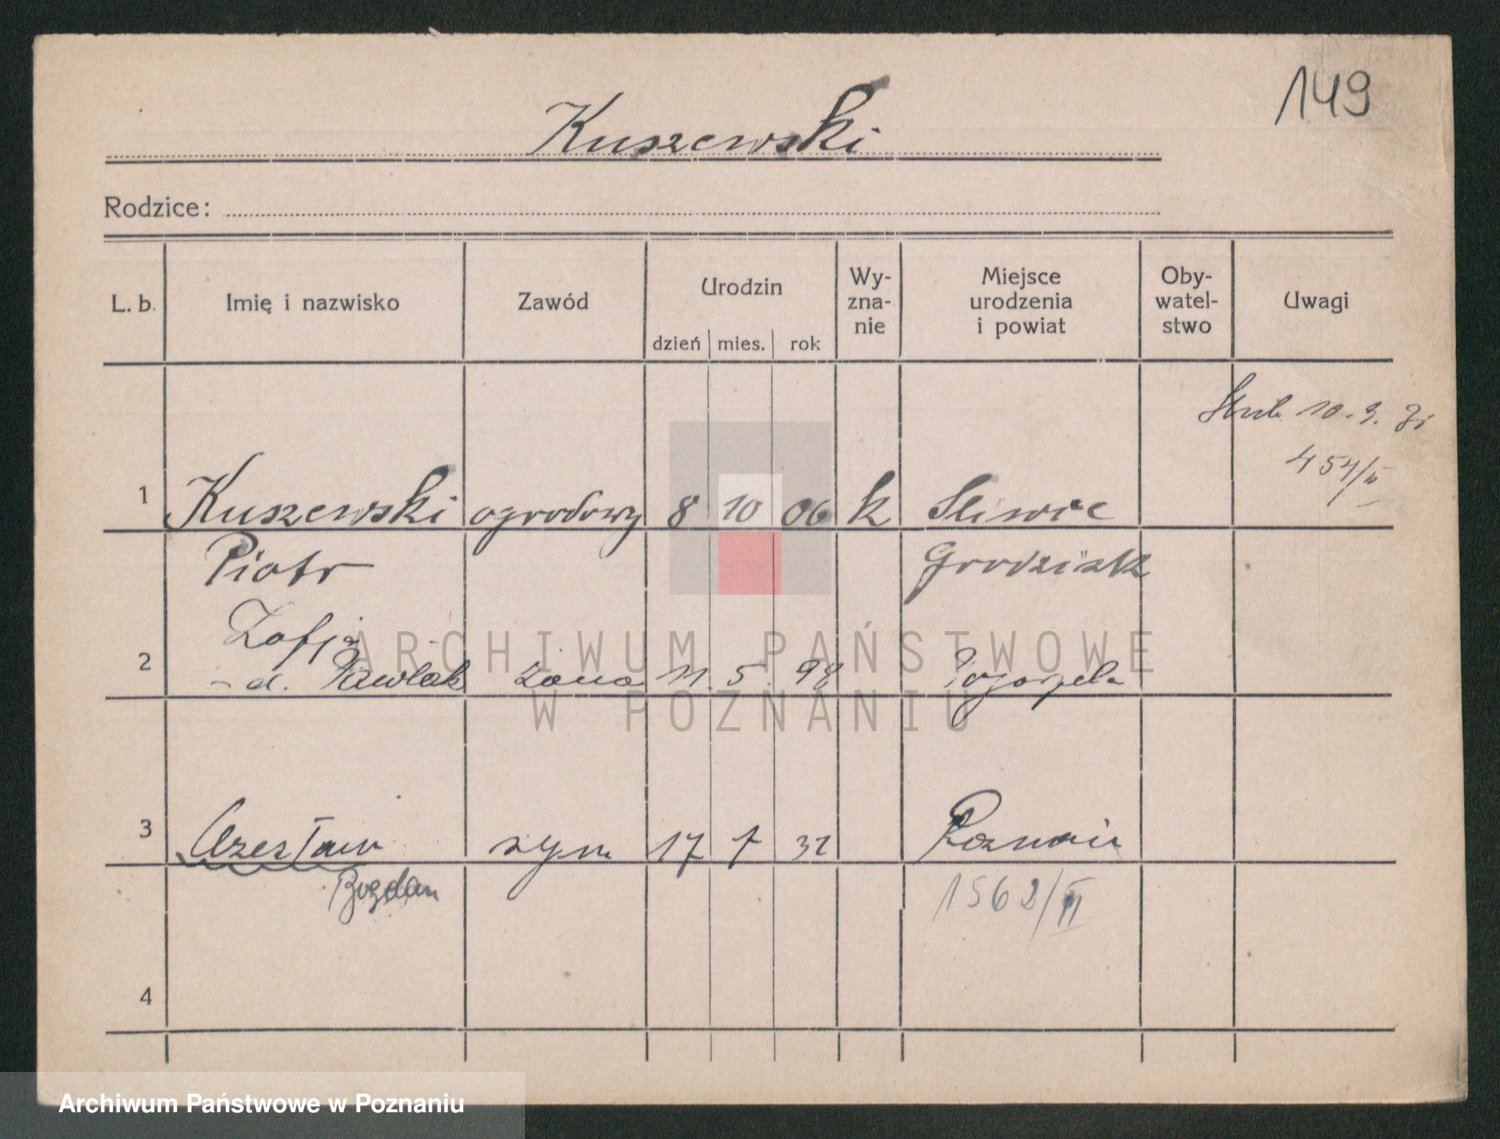 149
Kuszewski
Rodzice:
L. b. Imię i nazwisko Zawód Urodzin dzień mies. rok Wy-zna-nie Miejsce urodzenia i powiat Oby-watel-stwo Uwagi
10. 9. 31
454/II
1 Kuszewski ogrodowy 8 10 06 k Śliwic
Piotr Grodzisk
Zofja
2 d. Pawlak żona 11. 5. 98 Pogorzela
3 Czesław syn 17 7 32 Poznań
Bogdan 1562/II
4
ARCHIWUM PAŃSTWOWE
W POZNANIU
Archiwum Państwowe w Poznaniu